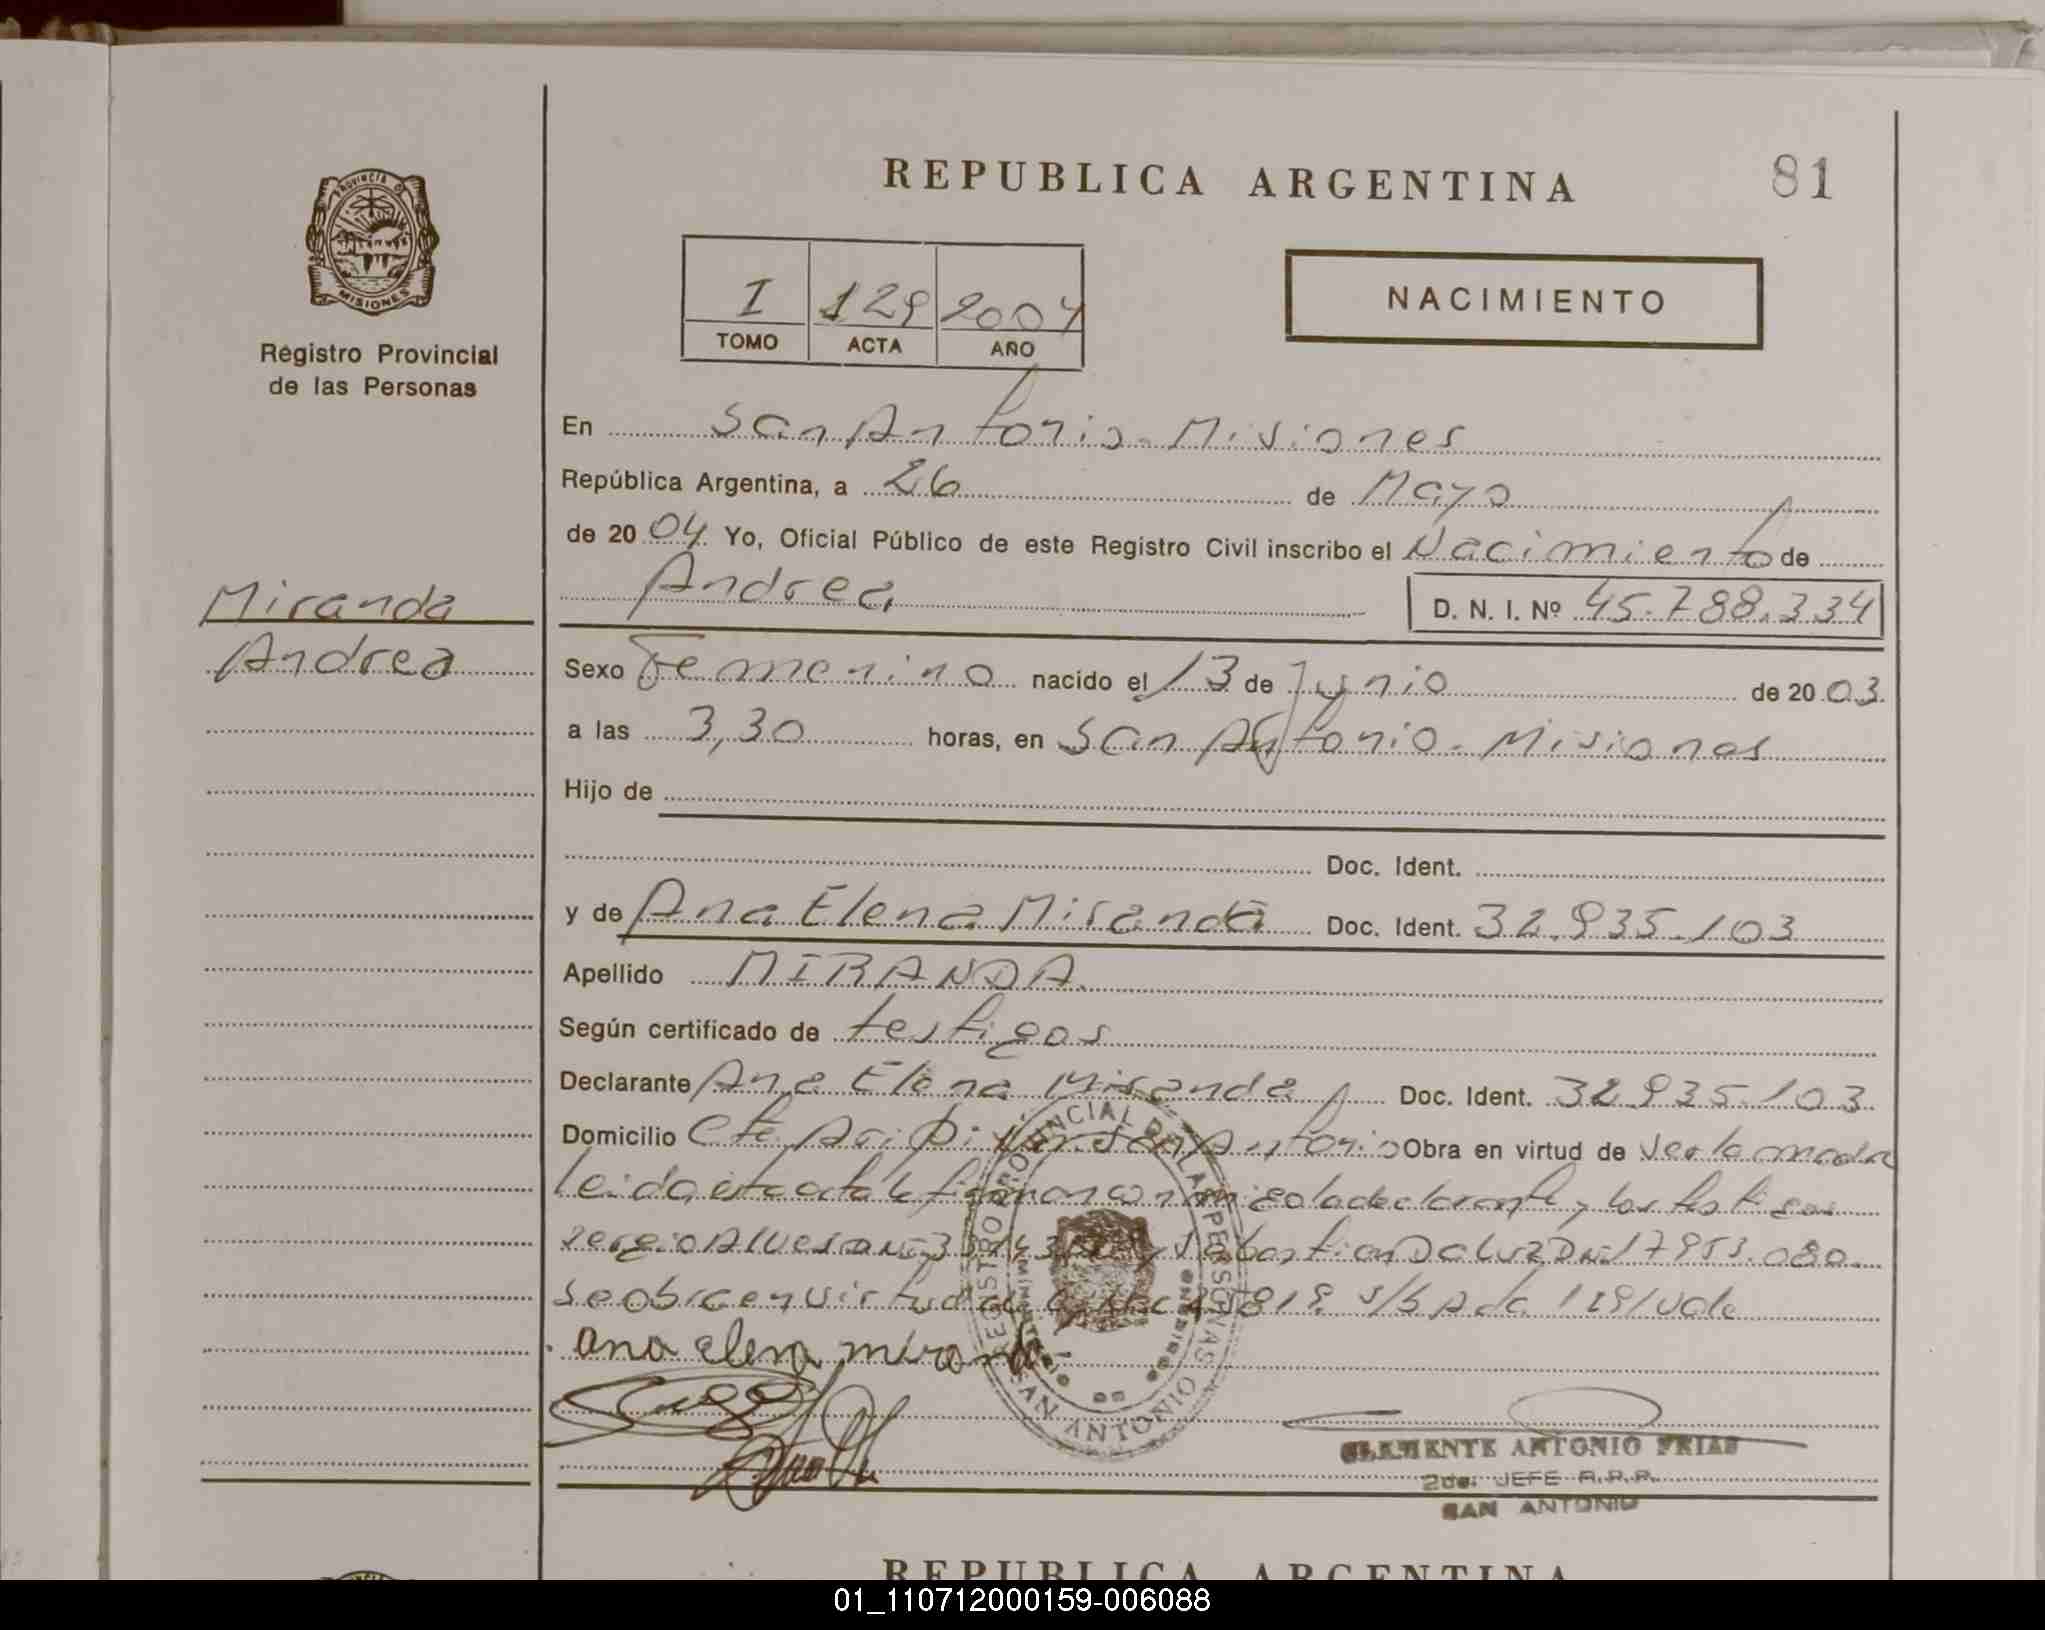 REPUBLICA ARGENTINA
81
PROVINCIA D
MISIONES
Registro Provincial
de las Personas
I 129 2004
TOMO ACTA AÑO
NACIMIENTO
En San Antonio - Misiones
República Argentina, a 26 de Mayo
de 20 04 Yo, Oficial Público de este Registro Civil inscribo el Nacimiento de
Andrea D. N. I. Nº 45.788.334
Miranda
Andrea
Sexo Femenino nacido el 13 de Junio de 20 03
a las 3,30 horas, en San Antonio - Misiones
Hijo de
Doc. Ident.
y de Ana Elena Miranda Doc. Ident. 32.935.103
Apellido MIRANDA
Según certificado de testigos
Declarante Ana Elena Miranda Doc. Ident. 32.935.103
Domicilio San Antonio Obra en virtud de ser la madre
Leida esta acta la firman conmigo la declarante y los testigos
Sergio Alves DNI y Sebastian Da Luz DNI 17.953.080.
se obra en virtud de s/b Acta 129/vale
ana elena miranda
REGISTRO PROVINCIAL DE LAS PERSONAS
SAN ANTONIO
CLEMENTE ANTONIO FRIAS
2do. JEFE R.P.P.
SAN ANTONIO
REPUBLICA ARGENTINA
01_110712000159-006088